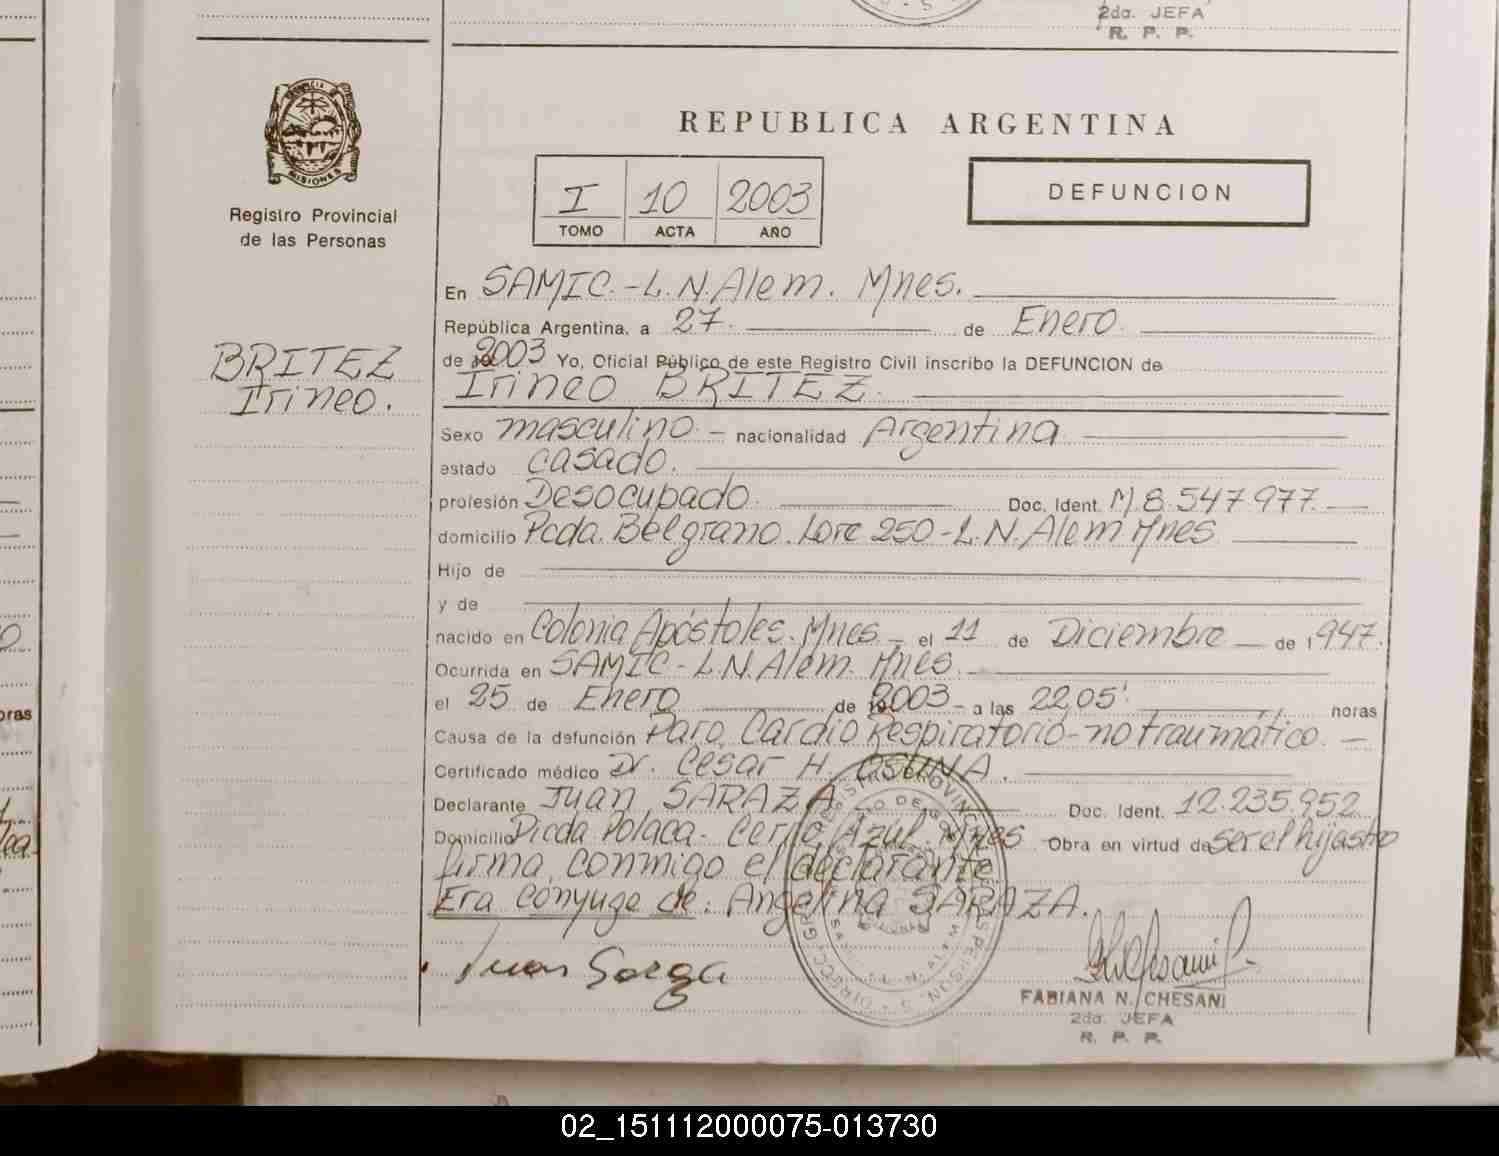 2da. JEFA
R. P. P.
PROVINCIA DE
MISIONES
Registro Provincial
de las Personas
BRITEZ
Irineo.
REPUBLICA ARGENTINA
I 10 2003
TOMO ACTA AÑO
DEFUNCION
En SAMIC.-L.N.Alem. Mnes.
República Argentina, a 27. de Enero.
de 2003 Yo, Oficial Público de este Registro Civil inscribo la DEFUNCION de
Irineo BRITEZ.
Sexo masculino.- nacionalidad Argentina
estado casado.
profesión Desocupado. Doc. Ident. M.8.547.977.
domicilio Pcda. Belgrano. Lote 250-L.N.Alem Mnes
Hijo de
y de
nacido en Colonia Apóstoles. Mnes.- el 11 de Diciembre de 1947.
Ocurrida en SAMIC-L.N.Alem. Mnes.
el 25 de Enero de 2003 - a las 22,05' horas
Causa de la defunción Paro Cardio Respiratorio-no traumático.-
Certificado médico Dr. Cesar H. OSUNA.
Declarante Juan SARAZA Doc. Ident. 12.235.952
Domicilio Picda Polaca- Cerro Azul. Mnes Obra en virtud de ser el hijastro
firma conmigo el declarante.
Era conyuge de: Angelina SARAZA.
Juan Sarza
FABIANA N. CHESANI
2da. JEFA
R. P. P.
02_151112000075-013730